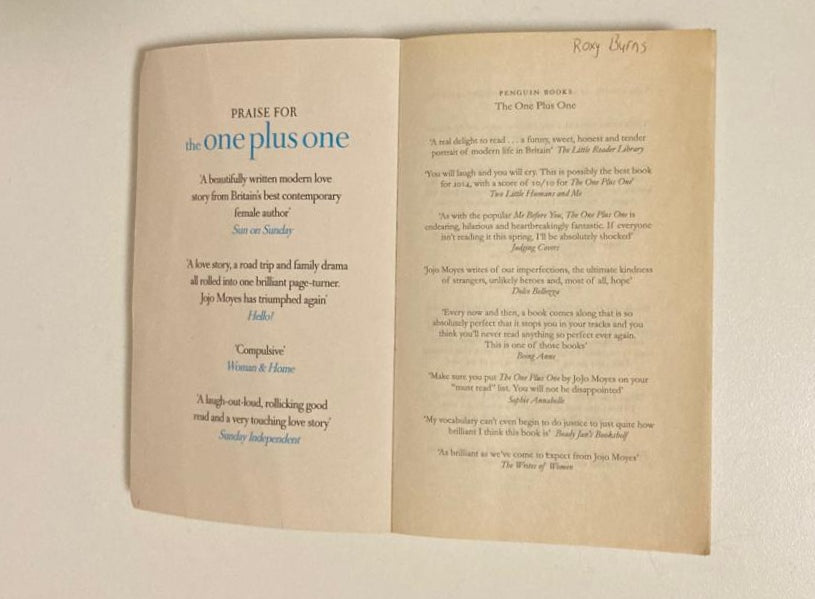 PRAISE FOR
the one plus one
'A beautifully written modern love
story from Britain's best contemporary
female author'
Sun on Sunday
'A love story, a road trip and family drama
all rolled into one brilliant page-turner.
Jojo Moyes has triumphed again'
Hello!
'Compulsive'
Woman & Home
'A laugh-out-loud, rollicking good
read and a very touching love story'
Sunday Independent
Roxy Burns
PENGUIN BOOKS
The One Plus One
'A real delight to read . . . a funny, sweet, honest and tender
portrait of modern life in Britain' The Little Reader Library
'You will laugh and you will cry. This is possibly the best book
for 2014, with a score of 10/10 for The One Plus One'
Two Little Humans and Me
'As with the popular Me Before You, The One Plus One is
endearing, hilarious and heartbreakingly fantastic. If everyone
isn't reading it this spring, I'll be absolutely shocked'
Judging Covers
'Jojo Moyes writes of our imperfections, the ultimate kindness
of strangers, unlikely heroes and, most of all, hope'
'Every now and then, a book comes along that is so
absolutely perfect that it stops you in your tracks and you
think you'll never read anything so perfect ever again.
This is one of those books'
Being Anne
'Make sure you put The One Plus One by JoJo Moyes on your
"must read" list. You will not be disappointed'
Sophie Annabelle
'My vocabulary can't even begin to do justice to just quite how
brilliant I think this book is' Bookshelf
'As brilliant as we've come to expect from Jojo Moyes'
The Writes of Women